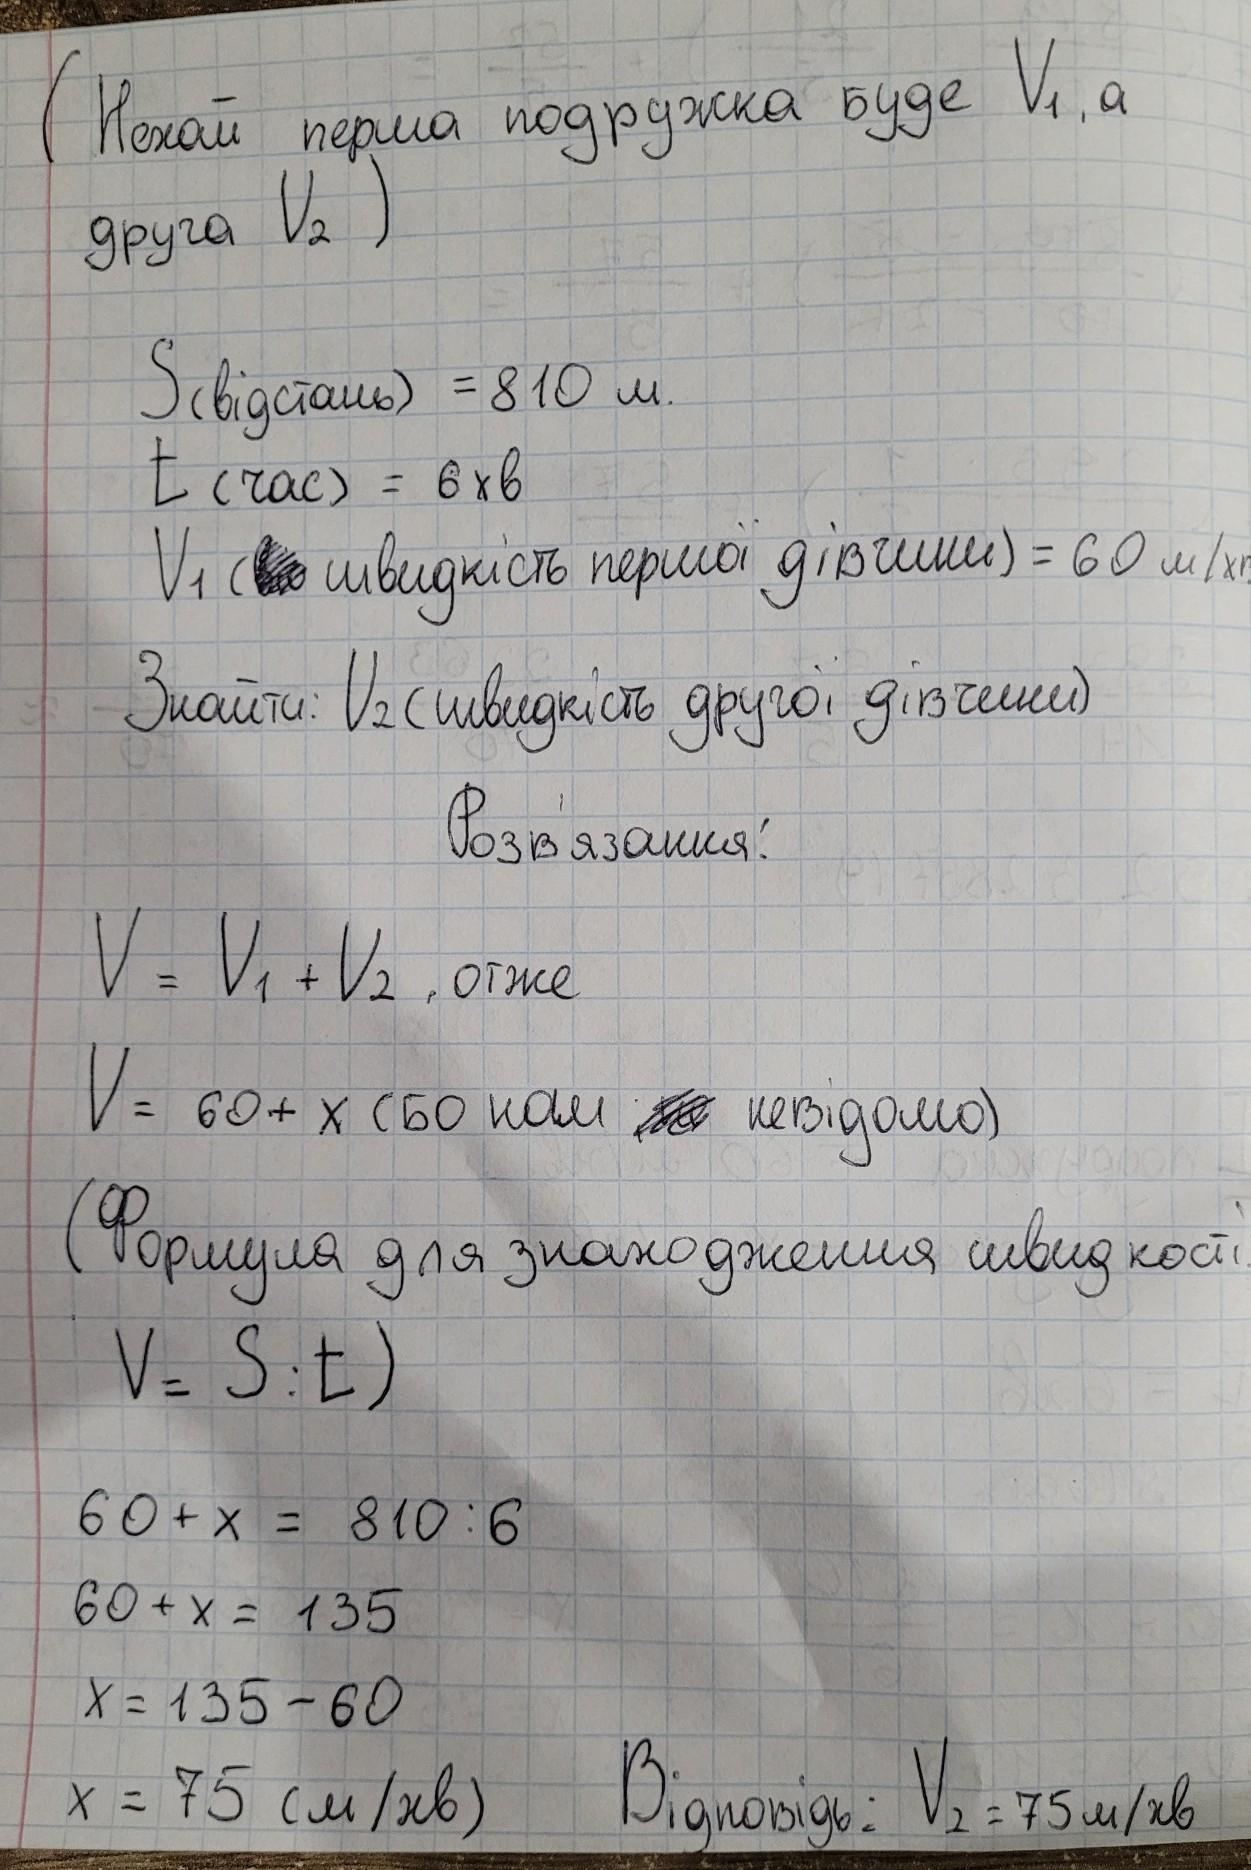 (Нехай перша подружка буде V1, а
друга V2)
S(відстань) = 810 м.
t (час) = 6 хв
V1 (швидкість першої дівчини) = 60 м/хв
Знайти: V2 (швидкість другої дівчини)
Розв'язання:
V = V1 + V2, отже
V = 60 + x (бо нам невідомо)
(Формула для знаходження швидкості:
V = S : t)
60 + x = 810 : 6
60 + x = 135
x = 135 - 60
x = 75 (м/хв) Відповідь: V2 = 75 м/хв